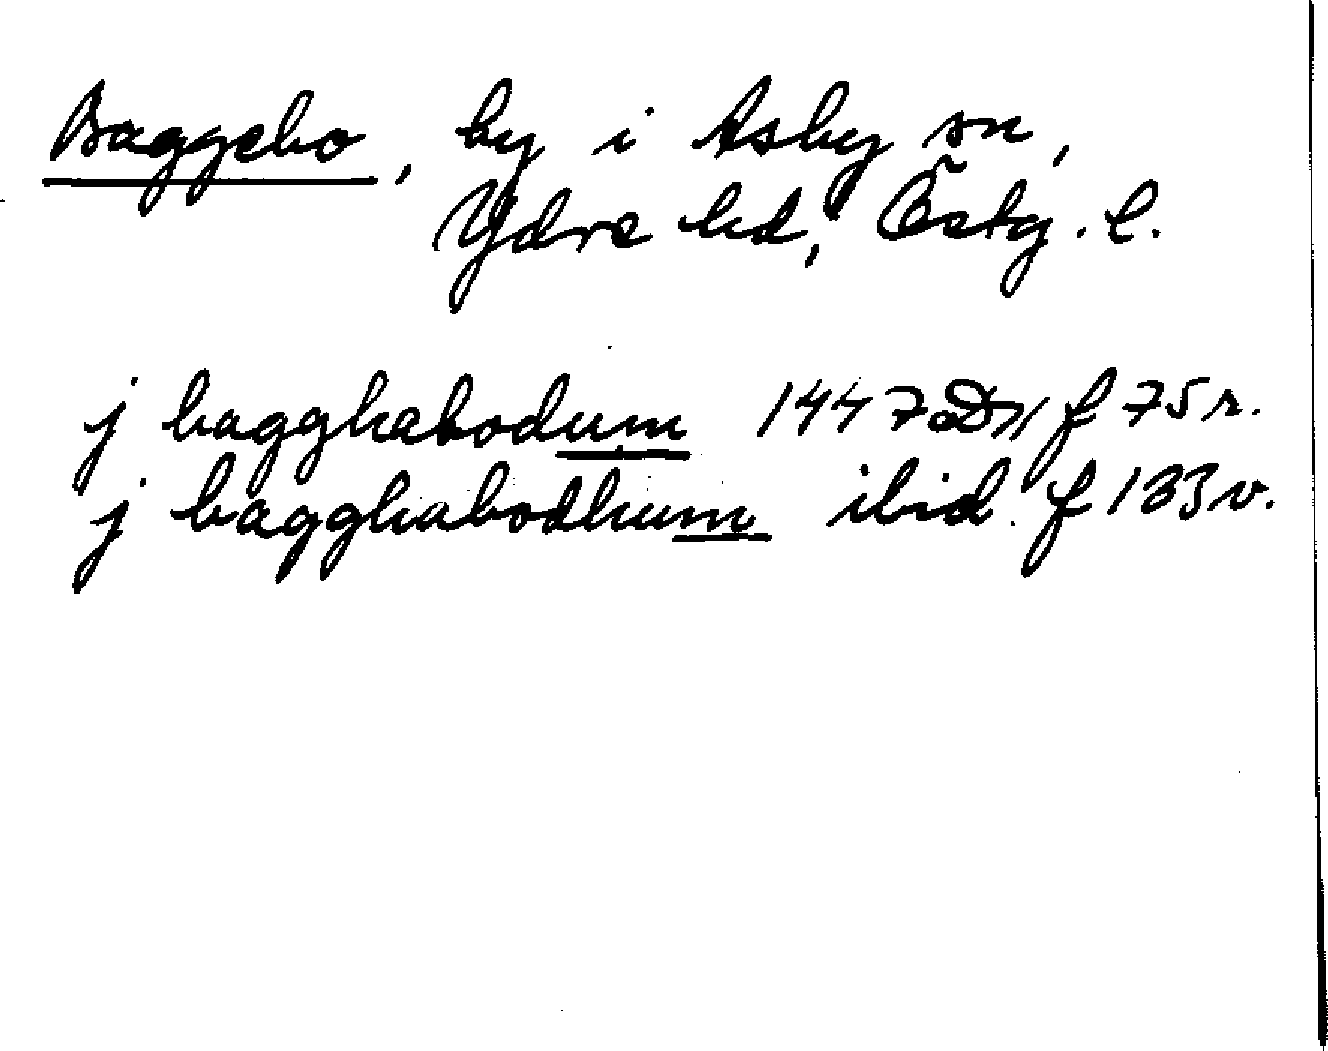 Baggebo, by i Asby sn,
Ydre hd, Östg. l.
j bagghabodum 1447 f 75 r.
j bagghabodhum ibid. f 133 v.